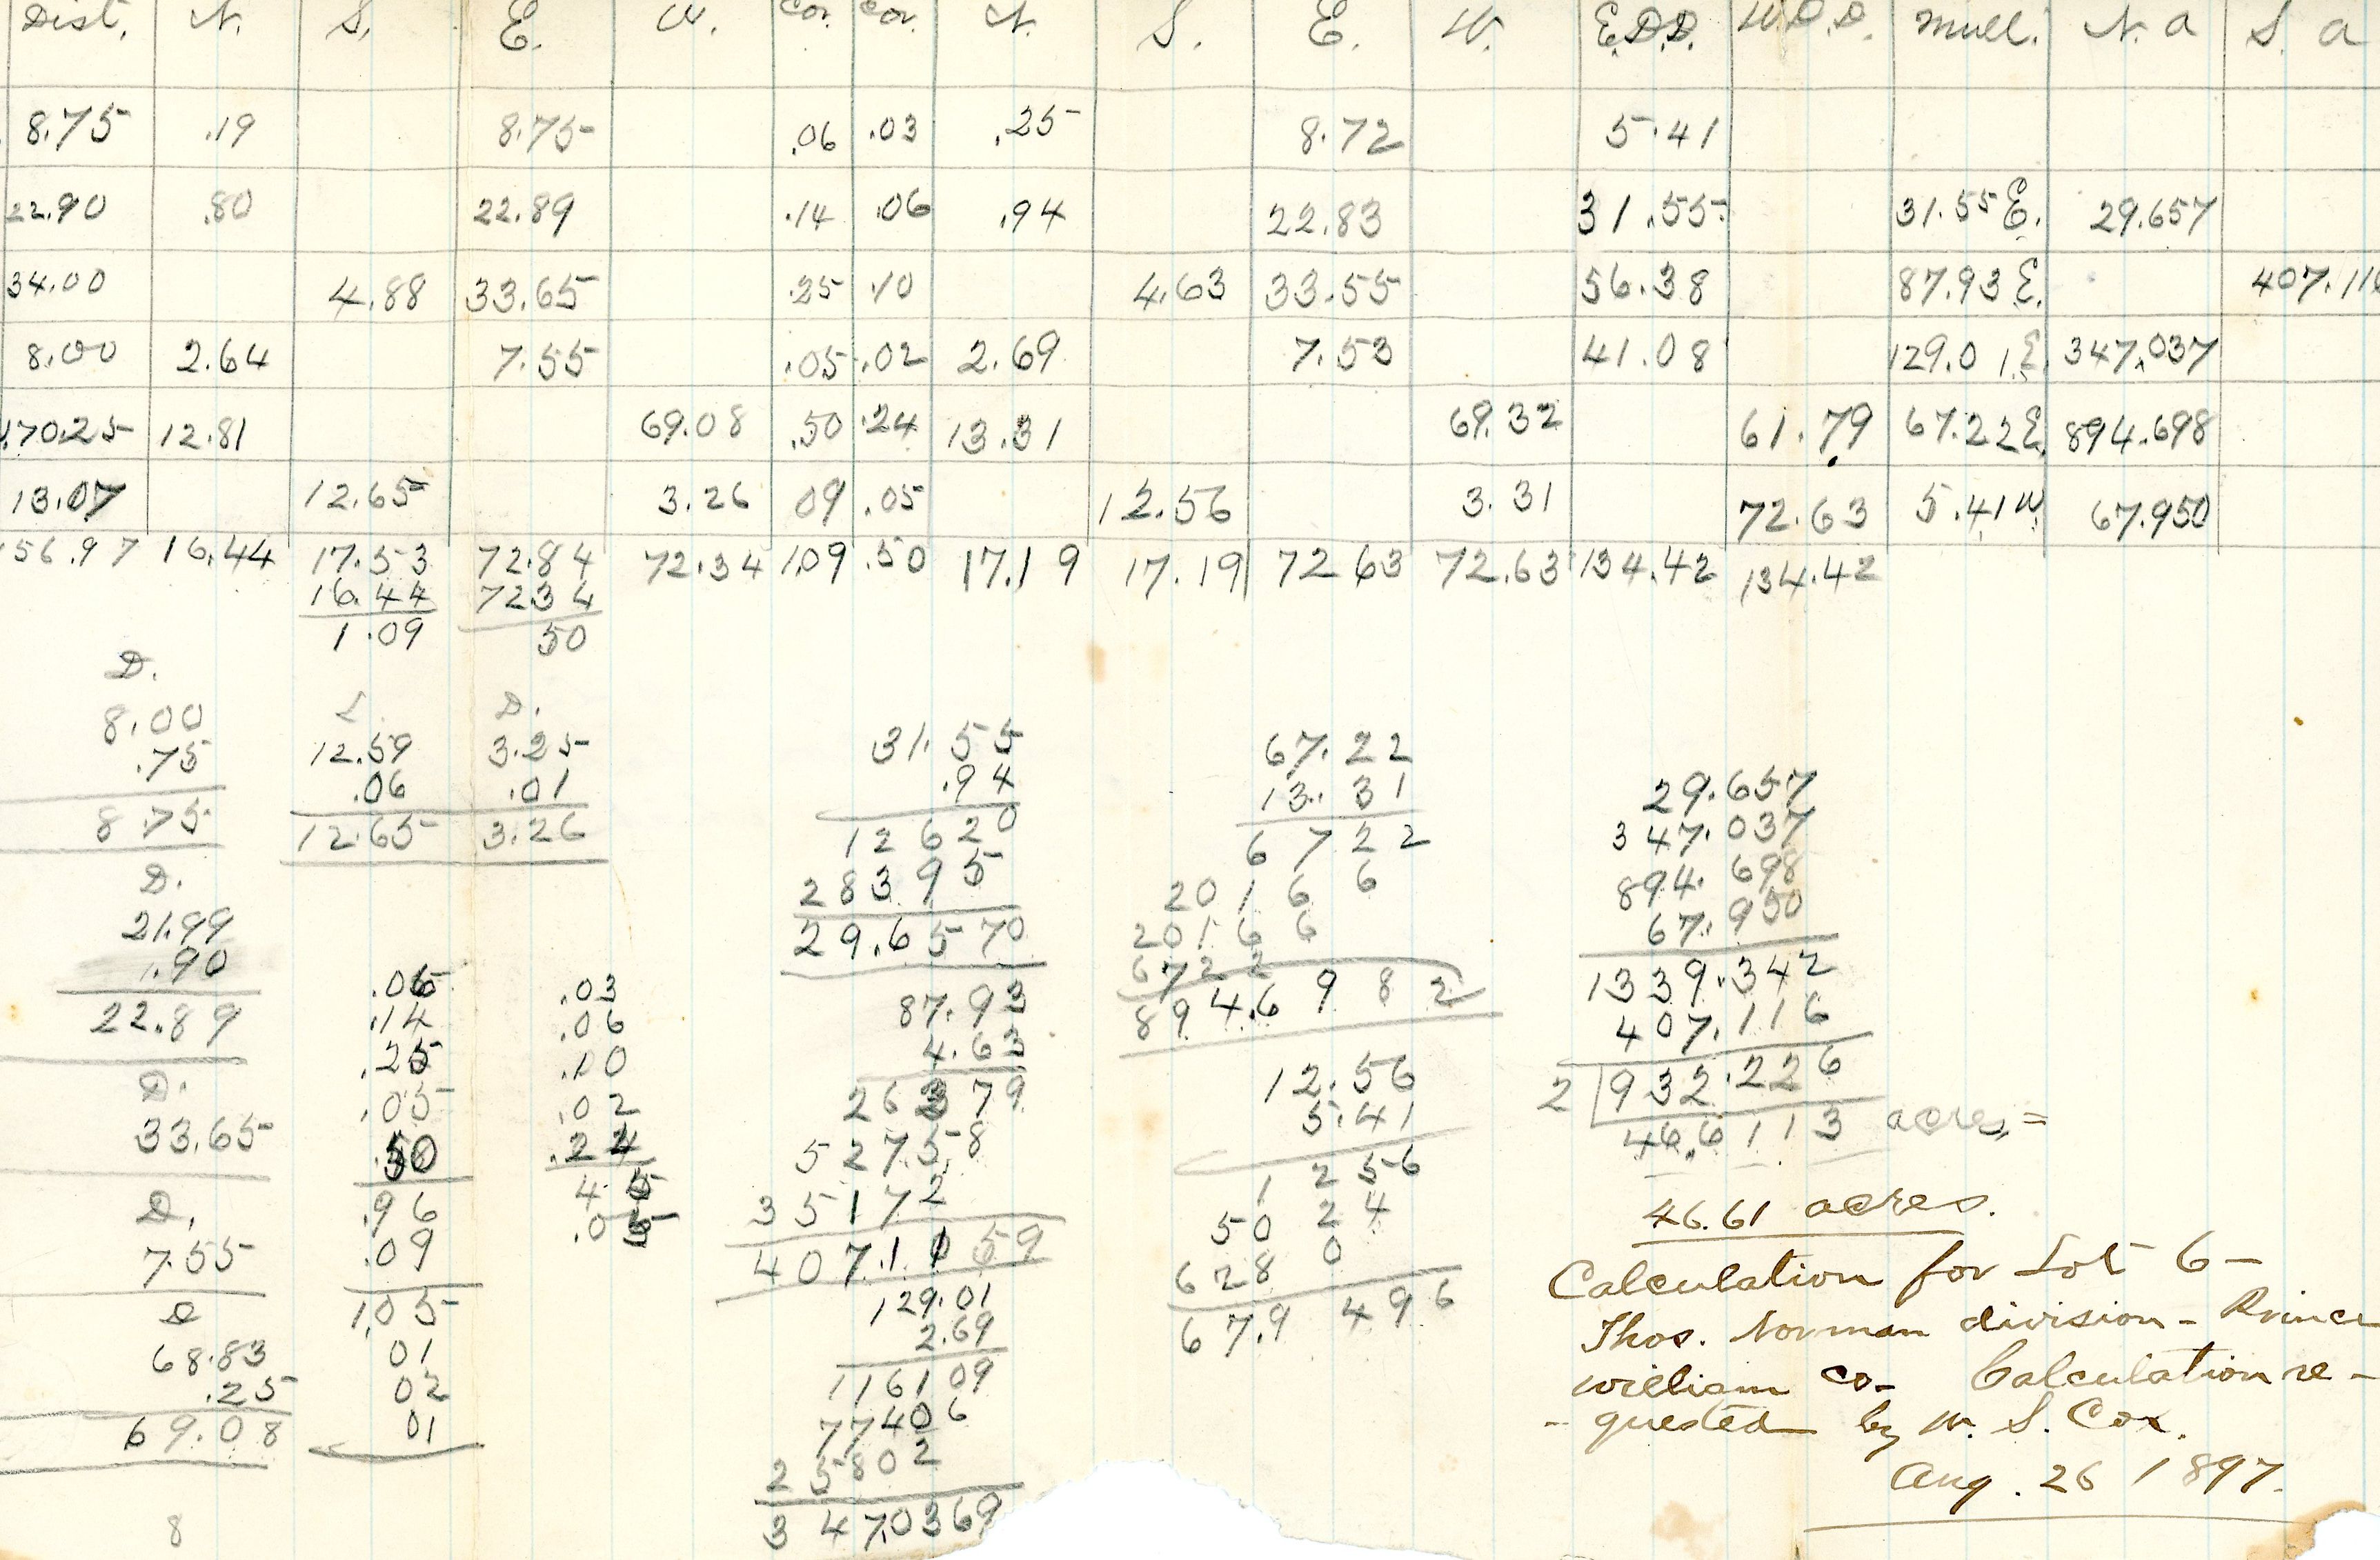 Dist. N. S. E. W. Cor. Cor. N. S. E. W. E.D.D. W.D.D. Mull. N. a S. a
8.75 .19 8.75 .06 .03 .25 8.72 5.41
22.90 .80 22.89 .14 .06 .94 22.83 31.55 31.55 E. 29.657
34.00 4.88 33.65 .25 .10 4.63 33.55 56.38 87.93 E. 407.116
8.00 2.64 7.55 .05 .02 2.69 7.53 41.08 129.01 E. 347.037
70.25 12.81 69.08 .50 .24 13.31 69.32 61.79 67.22 E. 894.698
13.07 12.65 3.26 09 .05 12.56 3.31 72.63 5.41 W. 67.950
156.97 16.44 17.53 72.84 72.34 1.09 .50 17.19 17.19 72 63 72.63 134.42 134.42
16.44 72 34
1.09 50
D.
8.00
.75
8.75
D.
21.99
.90
22.89
D.
33.65
D.
7.55
D
68.83
.25
69.08
8
L. D.
12.59 3.25
.06 .01
12.65 3.26
.06 .03
.14 .06
.25 .10
.05 .02
.50 .24
.96 45
.09 .05
1.05
01
02
01
31.55
.94
12620
28395
29.6570
87.93
4.63
26379
52758
35172
407.1159
129.01
2.69
116109
77406
25802
347.0369
67.22
13.31
6722
20166
20166
6722
894.6982
12.56
5.41
1256
5024
6280
67.9496
29.657
347.037
894.698
67.950
1339.342
407.116
2 932.226
46.6113 acres =
46.61 acres.
Calculation for Lot 6-
Thos. Norman division - Prince
William co- Calculation re-
- quested by W. S. Cox.
Aug. 26 1897.